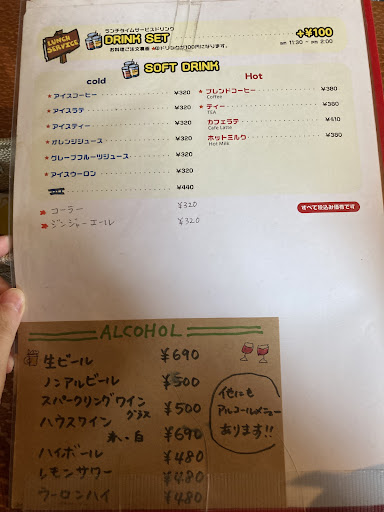 LUNCH SERVICE
ランチタイムサービスドリンク
DRINK SET
+¥100
AM 11:30 ー PM 2:00
SOFT DRINK
cold
★アイスコーヒー ¥320
★アイスラテ ¥320
★アイスティー ¥320
★オレンジジュース ¥320
★グレープフルーツジュース ¥320
★アイスウーロン ¥320
¥440
★コーラー ¥320
★ジンジャーエール ¥320
Hot
★ブレンドコーヒー ¥380
Coffee
★ティー ¥380
TEA
カフェラテ ¥410
Cafe Latte
ホットミルク ¥380
Hot Milk
すべて税込み価格です
ALCOHOL
生ビール ¥690
ノンアルビール ¥500
スパークリングワイン
グラス ¥500
ハウスワイン
赤・白 ¥690
ハイボール ¥480
レモンサワー ¥480
ウーロンハイ ¥480
他にも
アルコールメニュー
あります!!